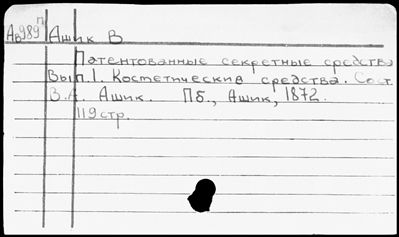 Ав989 П
Ашик В
Патентованные секретные средства
Вып.1. Косметические средства. Сост.
В.А. Ашик. Пб., Ашик, 1872.
119 стр.